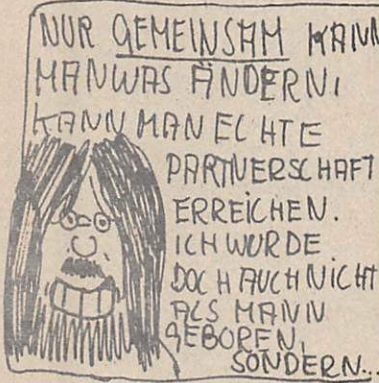 NUR GEMEINSAM KANN
MAN WAS ÄNDERN,
KANN MAN ECHTE
PARTNERSCHAFT
ERREICHEN.
ICH WURDE
DOCH AUCH NICHT
ALS MANN
GEBOREN,
SONDERN...